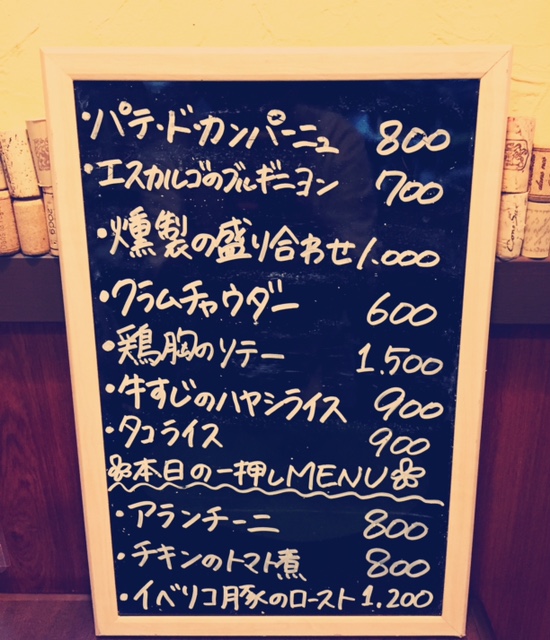 ・パテ・ド・カンパーニュ 800
・エスカルゴのブルギニヨン 700
・燻製の盛り合わせ 1.000
・クラムチャウダー 600
・鶏胸のソテー 1.500
・牛すじのハヤシライス 900
・タコライス 900
本日の一押しMENU
・アランチーニ 800
・チキンのトマト煮 800
・イベリコ豚のロースト 1.200
2009